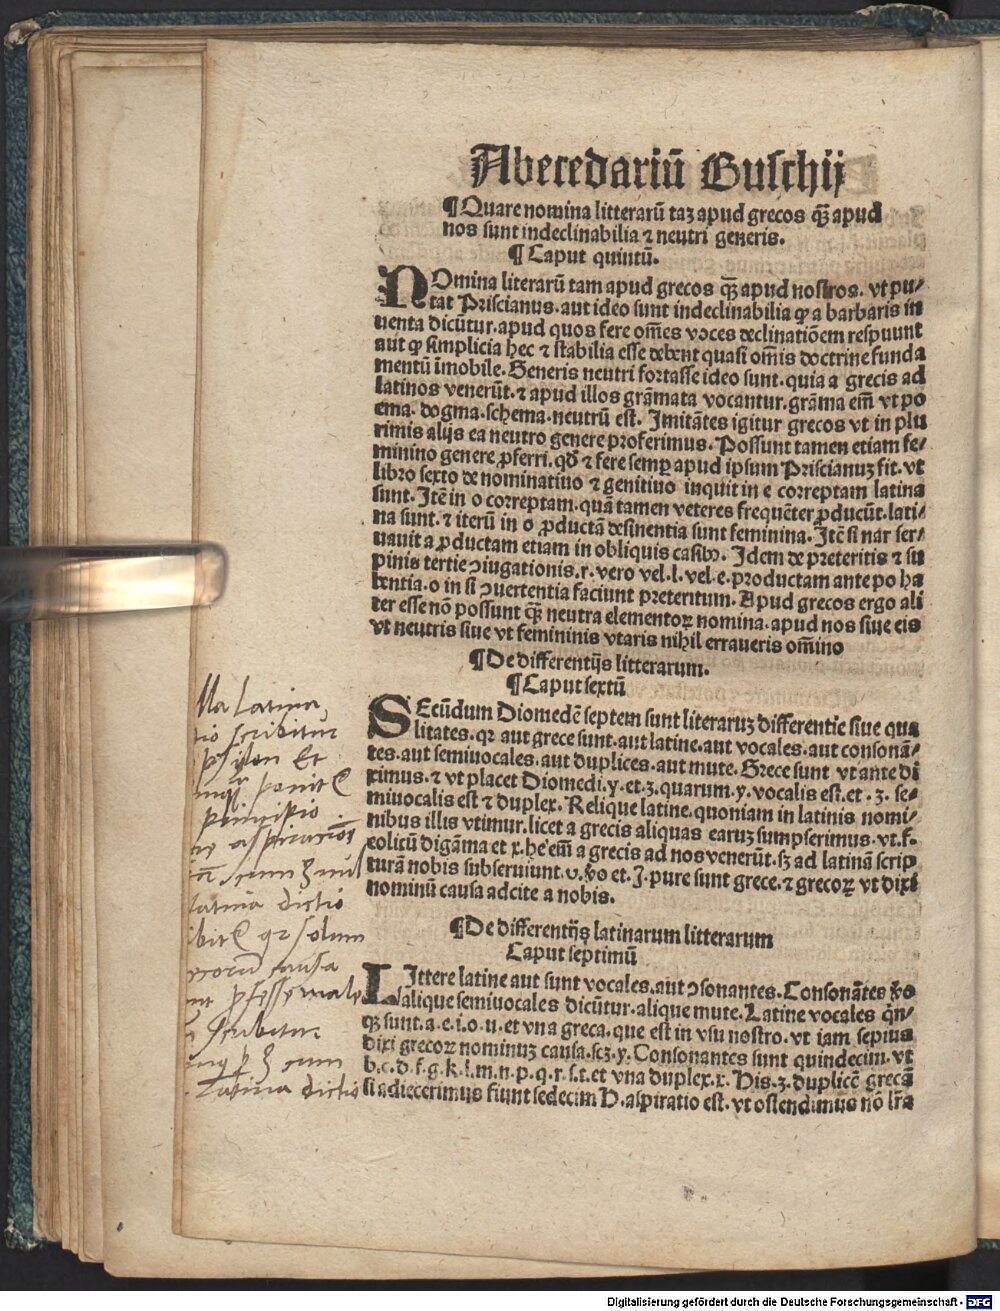 Abecedariū Buschij
¶ Quare nomina litterarū taꝫ apud grecos q̄ȝ apud
nos sunt indeclinabilia ⁊ neutri generis.
¶ Caput quintū.
NOmina literarū tam apud grecos q̄ȝ apud nostros. vt pu/
tat Priscianus. aut ideo sunt indeclinabilia ꝙ a barbaris in
uenta dicūtur. apud quos fere om̄es voces declinatiōem respuunt
aut ꝙ simplicia hec ⁊ stabilia esse debent quasi om̄is doctrine funda
mentū īmobile. Generis neutri fortasse ideo sunt. quia a grecis ad
latinos venerūt. ⁊ apud illos grāmata vocantur. grāma em̄ vt po
ema. dogma. schema. neutrū est. Imitātes igitur grecos vt in plu
rimis alijs ea neutro genere proferimus. Possunt tamen etiam fe/
minino genere ꝓferri. qd̄ ⁊ fere semꝑ apud ipsum Priscianuꝫ fit. vt
libro sexto de nominatiuo ⁊ genitiuo inquit in e correptam latina
sunt. Itē in o correptam. quā tamen veteres frequēter ꝓducūt. lati/
na sunt. ⁊ iterū in o ꝓductā desinentia sunt feminina. Itē si nar ser/
uauit a ꝓductam etiam in obliquis casibꝫ. Idem de preteritis ⁊ su
pinis tertie ꝯiugationis. r. vero vel. l. vel. e. productam ante po ha
bentia. o in si ꝯuertentia faciunt preteritum. Apud grecos ergo ali
ter esse nō possunt q̄ȝ neutra elementoꝝ nomina. apud nos siue eis
vt neutris siue vt femininis vtaris nihil erraueris om̄ino
¶ De differentijs litterarum.
¶ Caput sextū
SEcūdum Diomedē septem sunt literaruꝫ differentie siue qua
litates. qꝛ aut grece sunt. aut latine. aut vocales. aut consonā/
tes. aut semiuocales. aut duplices. aut mute. Grece sunt vt ante di
ximus. ⁊ vt placet Diomedi. y. et. ȝ. quarum. y. vocalis est. et. ȝ. se/
miuocalis est ⁊ duplex. Relique latine. quoniam in latinis nomi/
nibus illis vtimur. licet a grecis aliquas earuꝫ sumpserimus. vt. f.
eolicū digāma et x. he em̄ a grecis ad nos venerūt. sꝫ ad latinā scrip
turā nobis subseruiunt. v. ꝟo et. J. pure sunt grece. ⁊ grecoꝝ vt dixi
nominū causa adcite a nobis.
¶ De differentijs latinarum litterarum
Caput septimū
LIttere latine aut sunt vocales. aut ꝯsonantes. Consonātes ꝟo
alique semiuocales dicūtur. alique mute. Latine vocales qn̄/
q̄ȝ sunt. a. e. i. o. u. et vna greca. que est in vsu nostro. vt iam sepius
dixi grecoꝝ nominuꝫ causa. scꝫ. y. Consonantes sunt quindecim. vt
b. c. d. f. g. k. l. m. n. p. q. r. s. t. et vna duplex. x. His. ȝ. duplicē grecā
si adiecerimus fiunt sedecim H. aspiratio est. vt ostendimus nō lr̄a
lla Latina
scribitur
psylon Et
ponit
principio
aspiracio
cum
latina dictio
solum
causa
scribitur
cum
Latina dictio
Digitalisierung gefördert durch die Deutsche Forschungsgemeinschaft - DFG